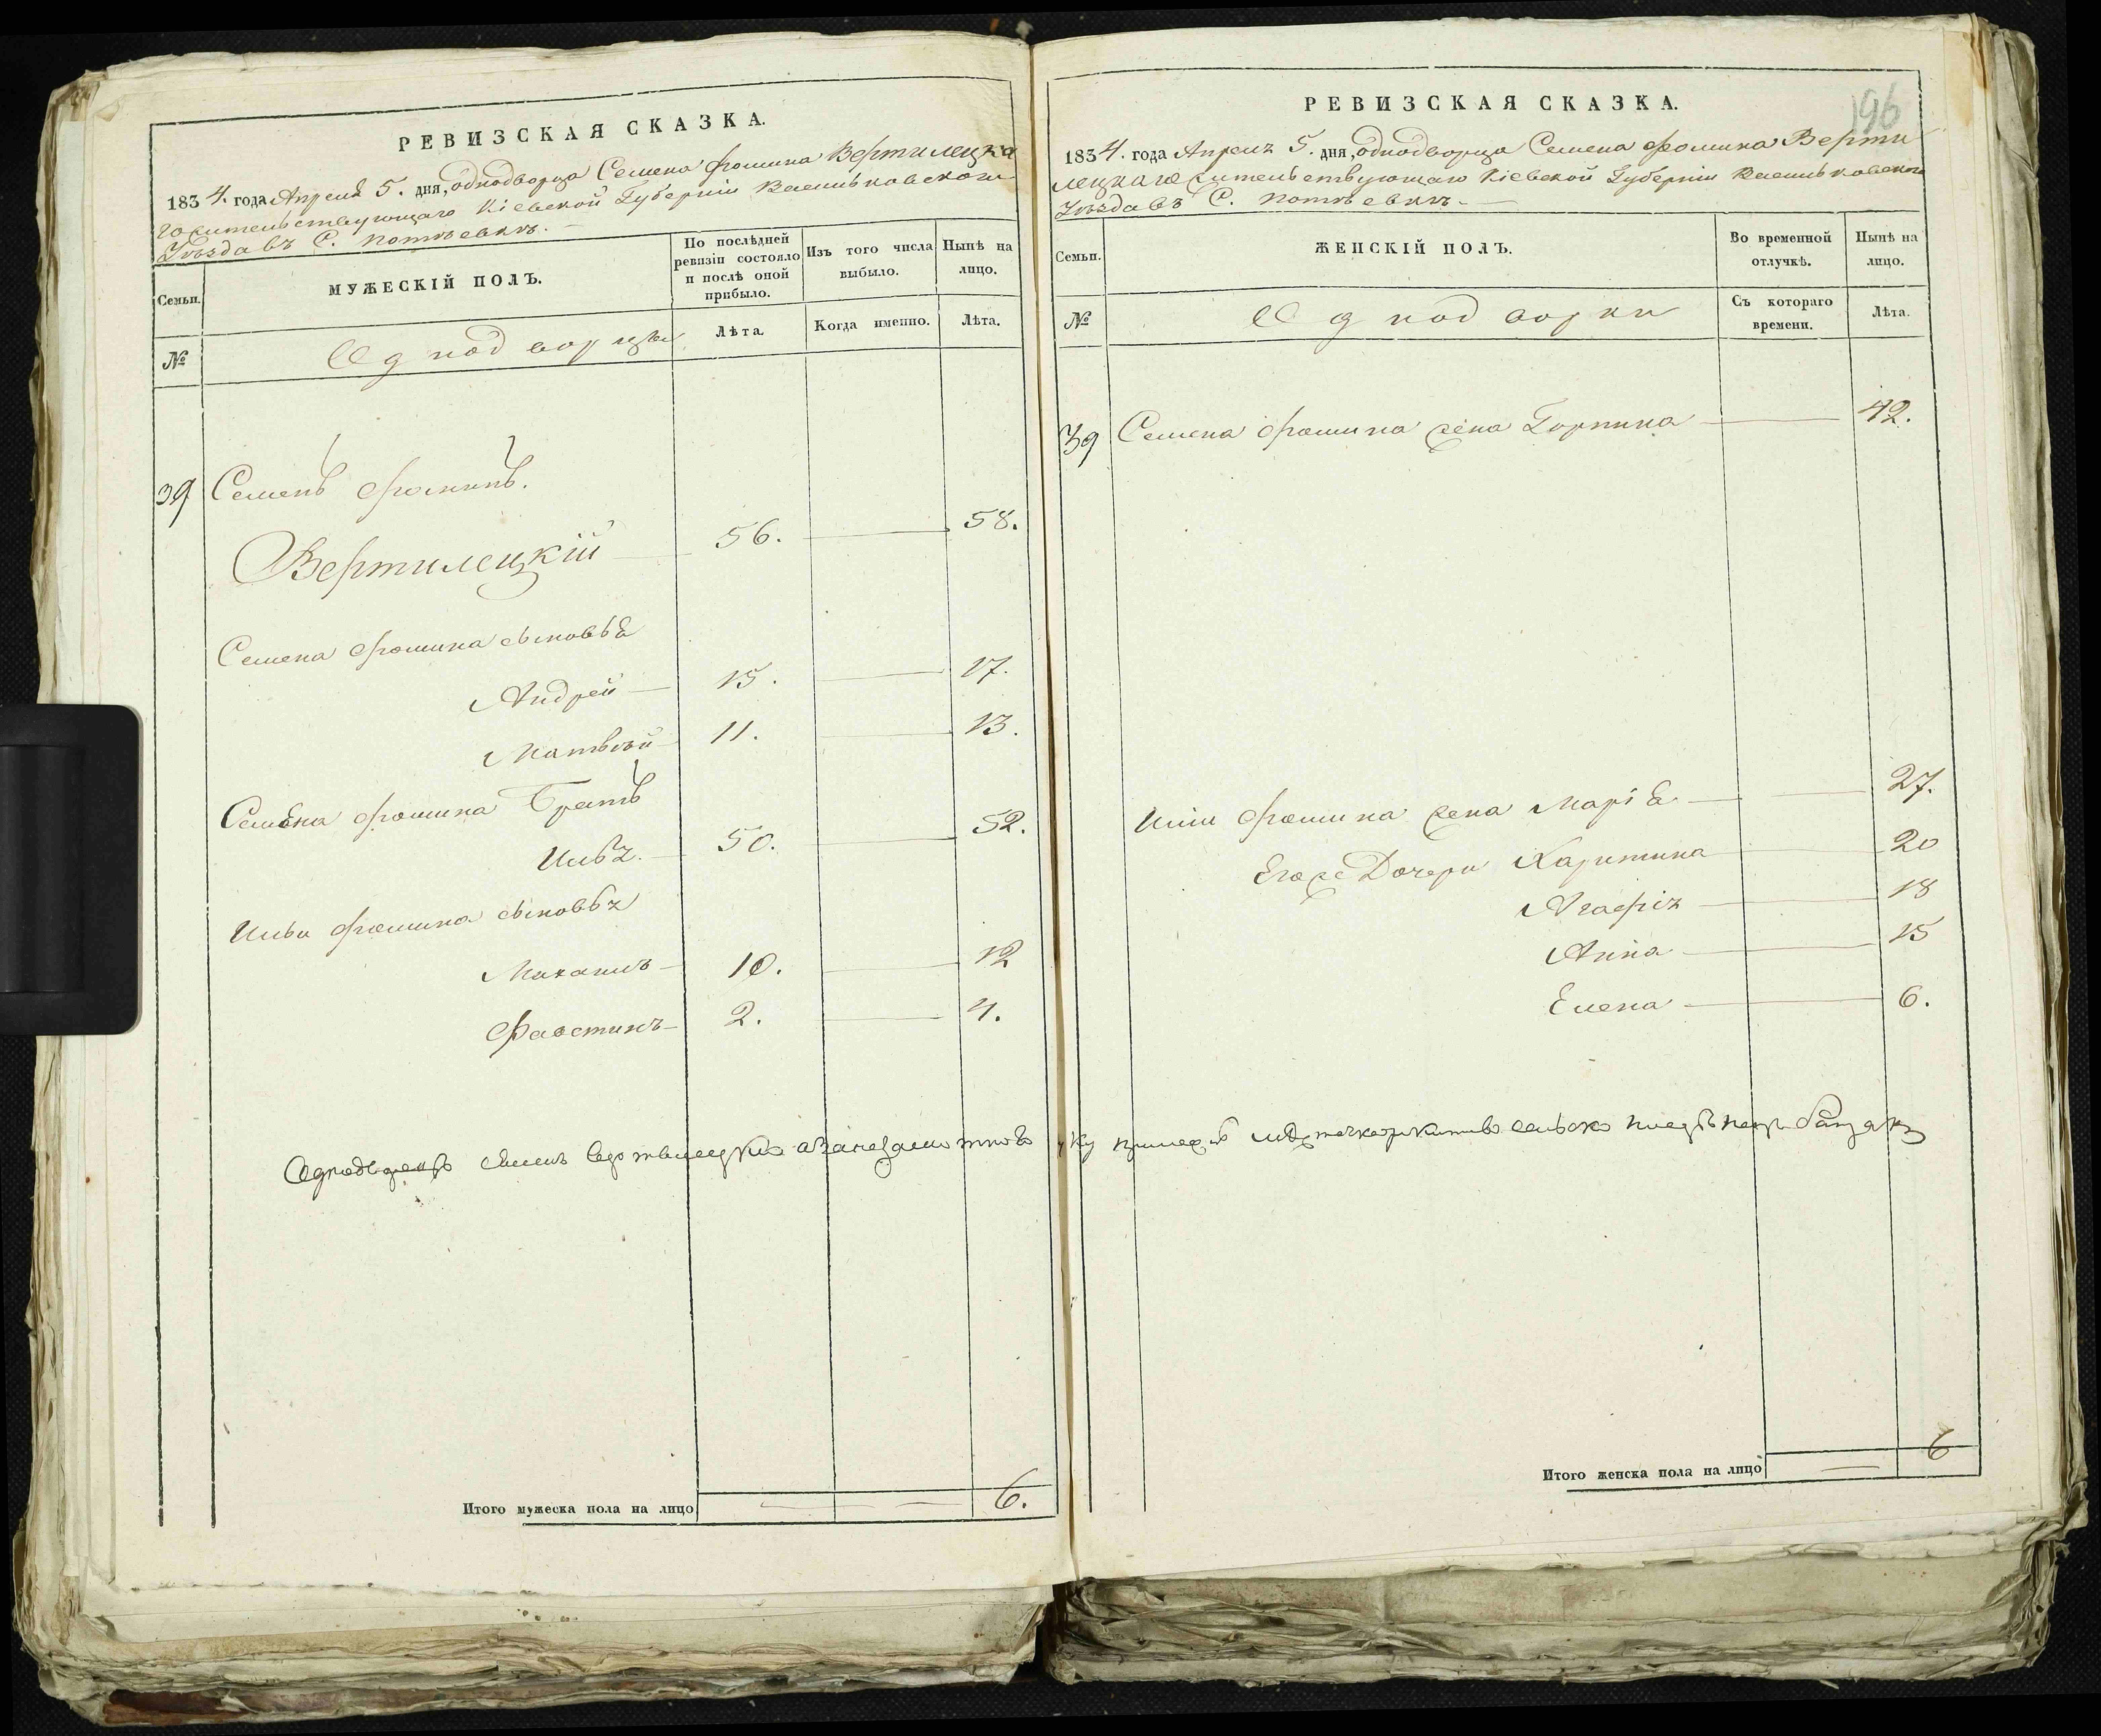 РЕВИЗСКАЯ СКАЗКА.
1834. года Апреля 5. дня, однодворца Семена Фомина Вертилецка
го жительствующаго Кіевской Губерніи Васильковскаго
Уѣзда въ С.
Семьи. МУЖЕСКІЙ ПОЛЪ. По послѣдней ревизіи состояло и послѣ оной прибыло. Изъ того числа выбыло. Нынѣ на лицо.
№ Однодворцы Лѣта. Когда именно. Лѣта.
39 Семенъ Фоминъ.
Вертилецкій 56. 58.
Семена Фомина сыновья
Андрей 15. 17.
Матвѣй 11. 13.
Семена Фомина Братъ
Илья. 50. 52.
Ильи Фомина сыновья
Михаилъ 10. 12
Фаостинъ 2. 4.
Однодворецъ Семенъ
Итого мужеска пола на лицо 6.
196
РЕВИЗСКАЯ СКАЗКА.
1834. года Апреля 5. дня, однодворца Семена Фомина Верти
лецкаго жительствующаго Кіевской Губерніи Васильковскаго
Уѣзда въ С.
Семьи. ЖЕНСКІЙ ПОЛЪ. Во временной отлучкѣ. Нынѣ на лицо.
№ Однодворки Съ котораго времени. Лѣта.
39 Семена Фомина жена Горпина 42.
Ильи Фомина жена Марія 27.
Егоже Дочери Харитина 20
Агафія 18
Анна 15
Елена 6.
Итого женска пола на лицо 6